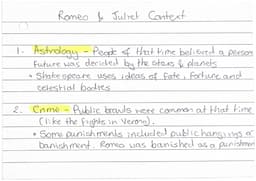 Romeo & Juliet Context
1. Astrology - People of that time believed a person
future was decided by the stars & planets
• Shakespeare uses ideas of fate, fortune and
celestial bodies
2. Crime - Public brawls were common at that time
(like the fights in Verona).
• Some punishments included public hangings or
banishment. Romeo was banished as a punishment